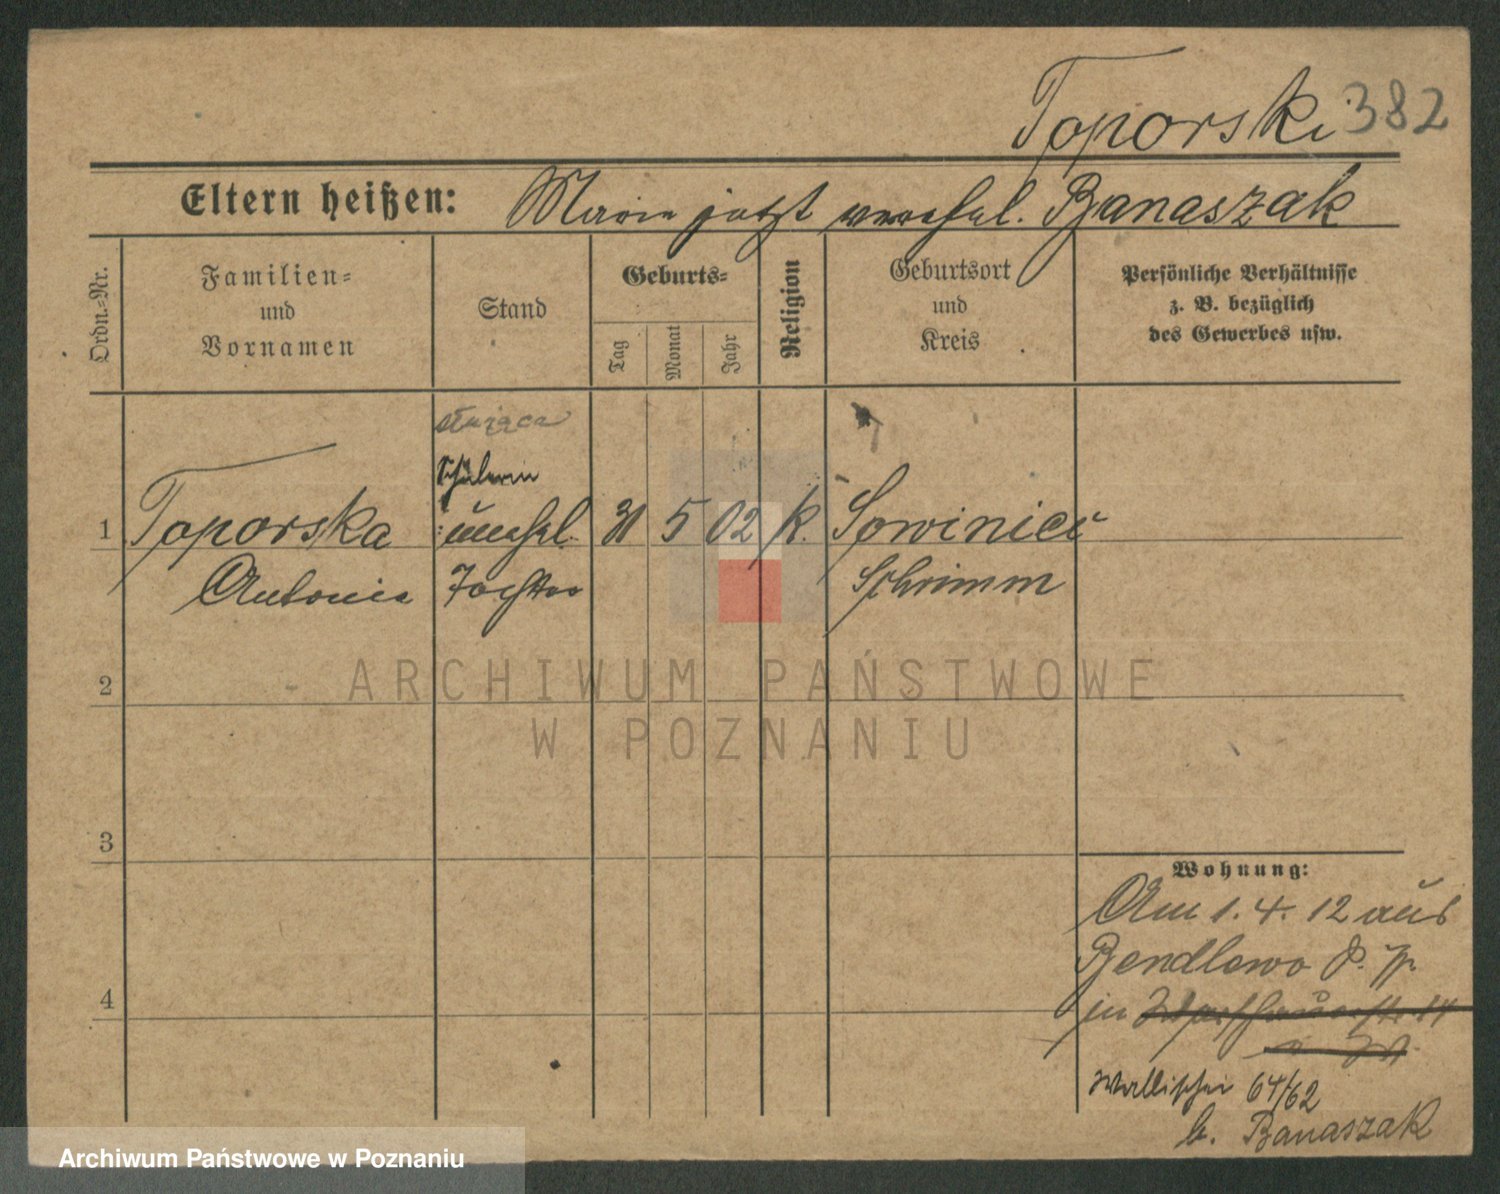 Toporski 382
Eltern heißen: Marie jetzt verehel. Banaszak
Ordn.=Nr.
Familien=
und
Vornamen
Stand
Geburts=
Tag
Monat
Jahr
Religion
Geburtsort
und
Kreis
Persönliche Verhältnisse
z. B. bezüglich
des Gewerbes usw.
służąca
Schülerin
1 Toporska unehel. 31 5 02 k. Sowiniec
Antonie Tochter Schrimm
2
3
4
Wohnung:
Am 1. 4. 12 aus
Bendlewo
in 14
Wallischei 64/62
b. Banaszak
ARCHIWUM PAŃSTWOWE
W POZNANIU
Archiwum Państwowe w Poznaniu